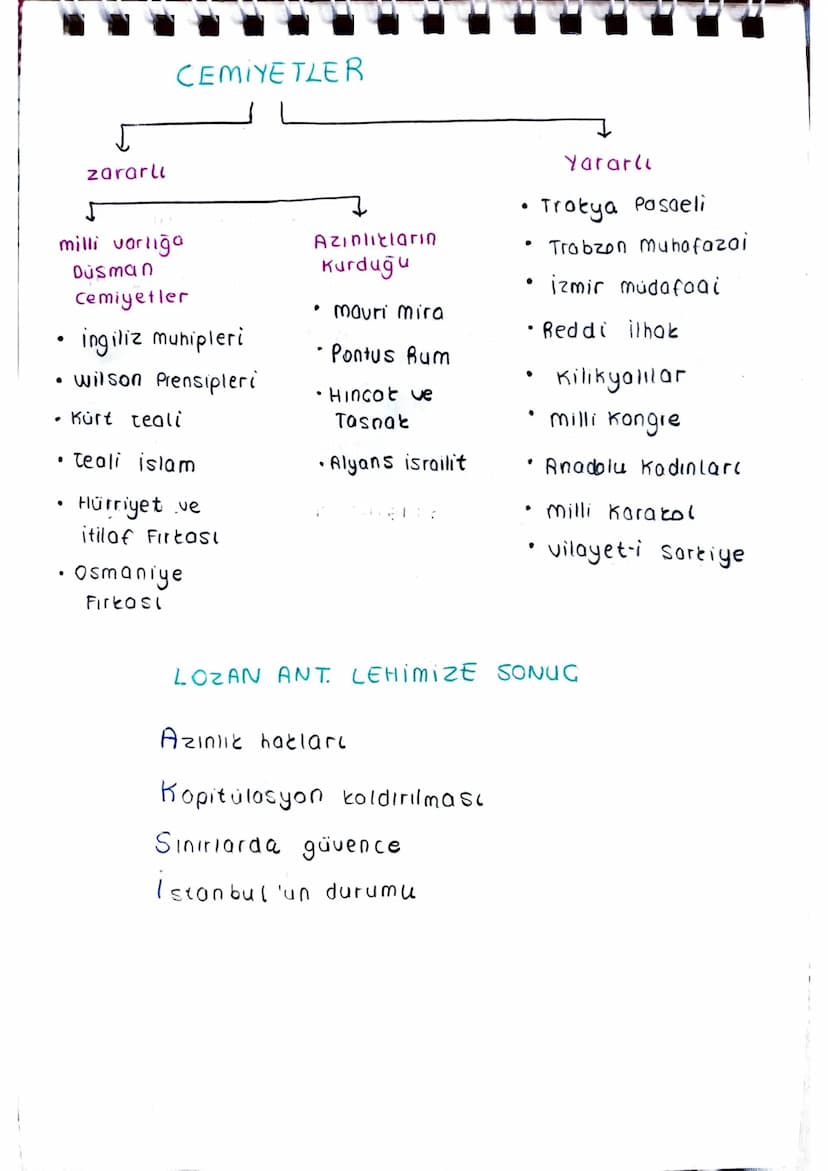 CEMİYETLER
zararlı
milli varlığa
Düşman
Cemiyetler
• ingiliz muhipleri
• wilson Prensipleri
• Kürt teali
• teali islam
• Hürriyet ve
itilaf Fırkası
• Osmaniye
Fırkası
Azınlıkların
Kurduğu
• mavri mira
• Pontus Rum
• Hıncak ve
Taşnak
• Alyans israilit
Yararlı
• Trakya Paşaeli
• Trabzon Muhafazai
• izmir müdafaai
• Reddi ilhak
• Kilikyalılar
• milli Kongre
• Anadolu Kadınları
• milli Karakol
• vilayet-i Şarkiye
LOZAN ANT. LEHİMİZE SONUÇ
Azınlık hakları
Kapitülasyon kaldırılması
Sınırlarda güvence
İstanbul'un durumu